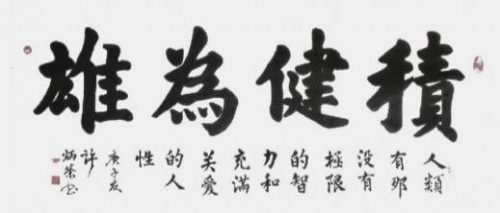 積健為雄
人類
有那
没有
極限
的智
力和
充滿
关愛
的人
性
庚子夏
许
炳荣书